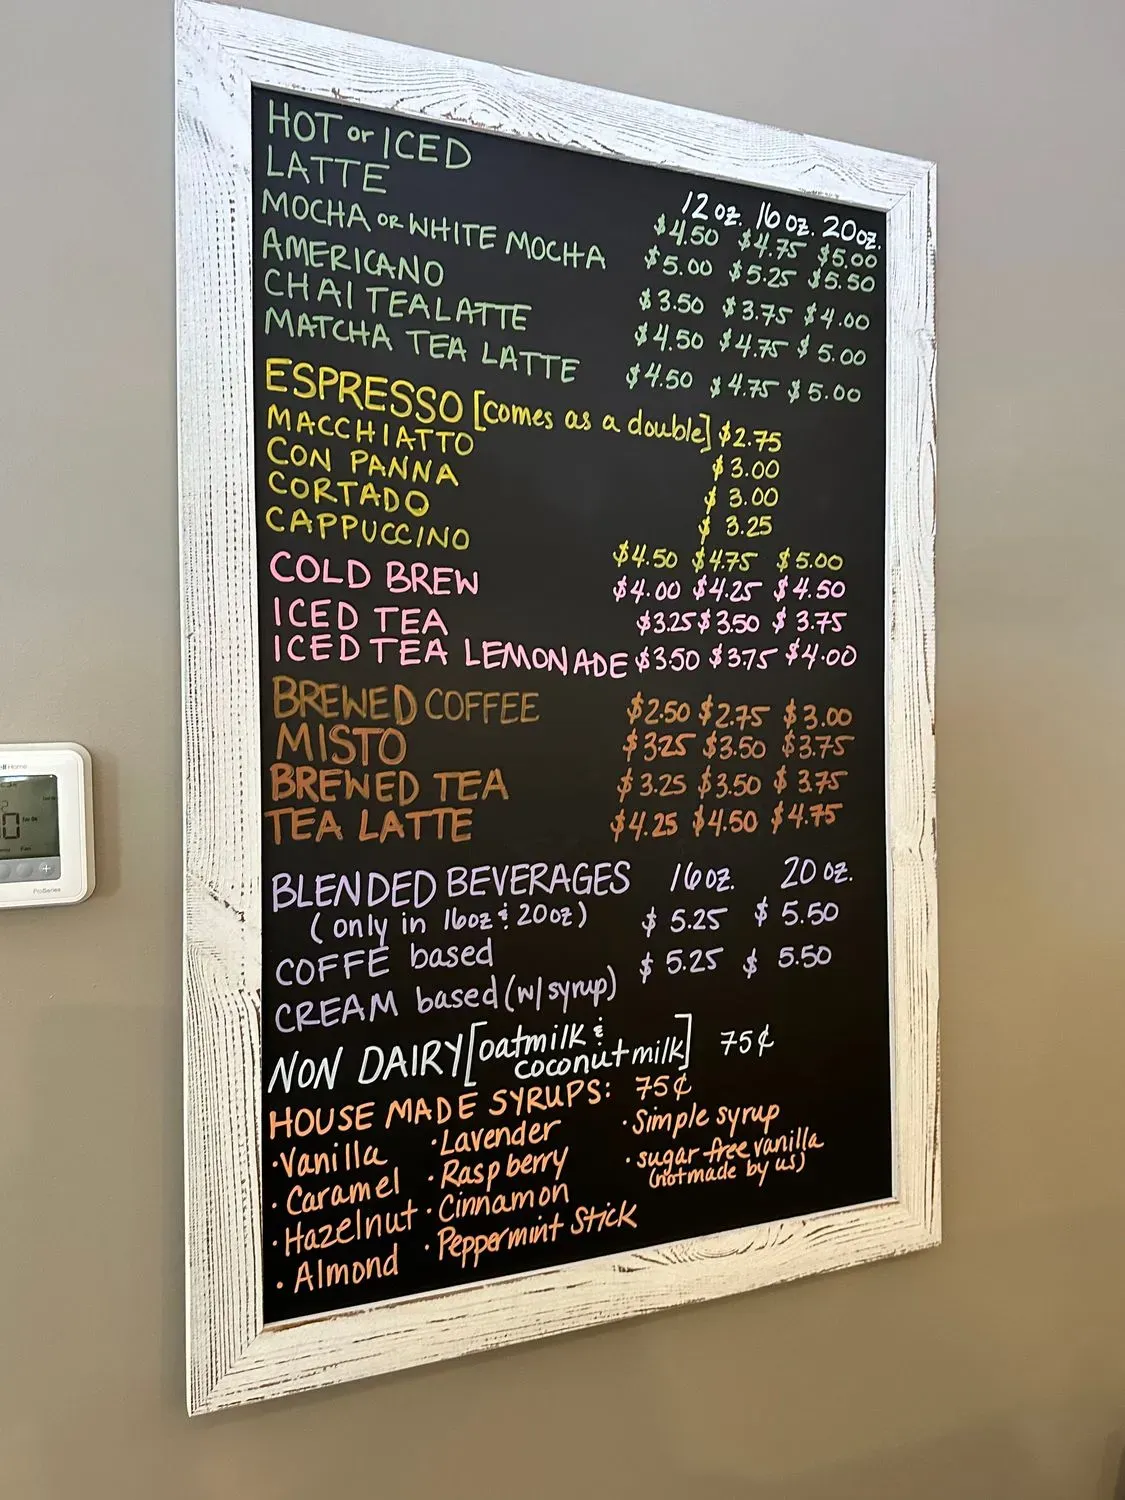 HOT or ICED
12 oz. 16 oz. 20 oz.
LATTE $4.50 $4.75 $5.00
MOCHA OR WHITE MOCHA $5.00 $5.25 $5.50
AMERICANO $3.50 $3.75 $4.00
CHAI TEA LATTE $4.50 $4.75 $5.00
MATCHA TEA LATTE $4.50 $4.75 $5.00
ESPRESSO [comes as a double] $2.75
MACCHIATTO $3.00
CON PANNA $3.00
CORTADO $3.25
CAPPUCCINO $4.50 $4.75 $5.00
COLD BREW $4.00 $4.25 $4.50
ICED TEA $3.25 $3.50 $3.75
ICED TEA LEMONADE $3.50 $3.75 $4.00
BREWED COFFEE $2.50 $2.75 $3.00
MISTO $3.25 $3.50 $3.75
BREWED TEA $3.25 $3.50 $3.75
TEA LATTE $4.25 $4.50 $4.75
BLENDED BEVERAGES 16 oz. 20 oz.
(only in 16oz & 20oz)
COFFE based $5.25 $5.50
CREAM based (w/ syrup) $5.25 $5.50
NON DAIRY [oatmilk &
coconut milk] 75¢
HOUSE MADE SYRUPS: 75¢
• Vanilla
• Caramel
• Hazelnut
• Almond
• Lavender
• Raspberry
• Cinnamon
• Peppermint Stick
• Simple syrup
• sugar free vanilla
(not made by us)
ProSeries